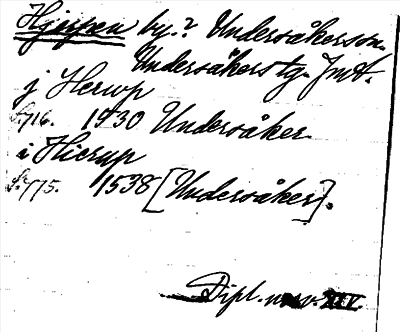 Hjerpen by.? Undersåkers sn.
Undersåkers tg. Jmt.
j Herwp
S. 716. 1530 Undersåker
i Hierup
S. 775. 1538 [Undersåker].
Dipl. norv. XIV.